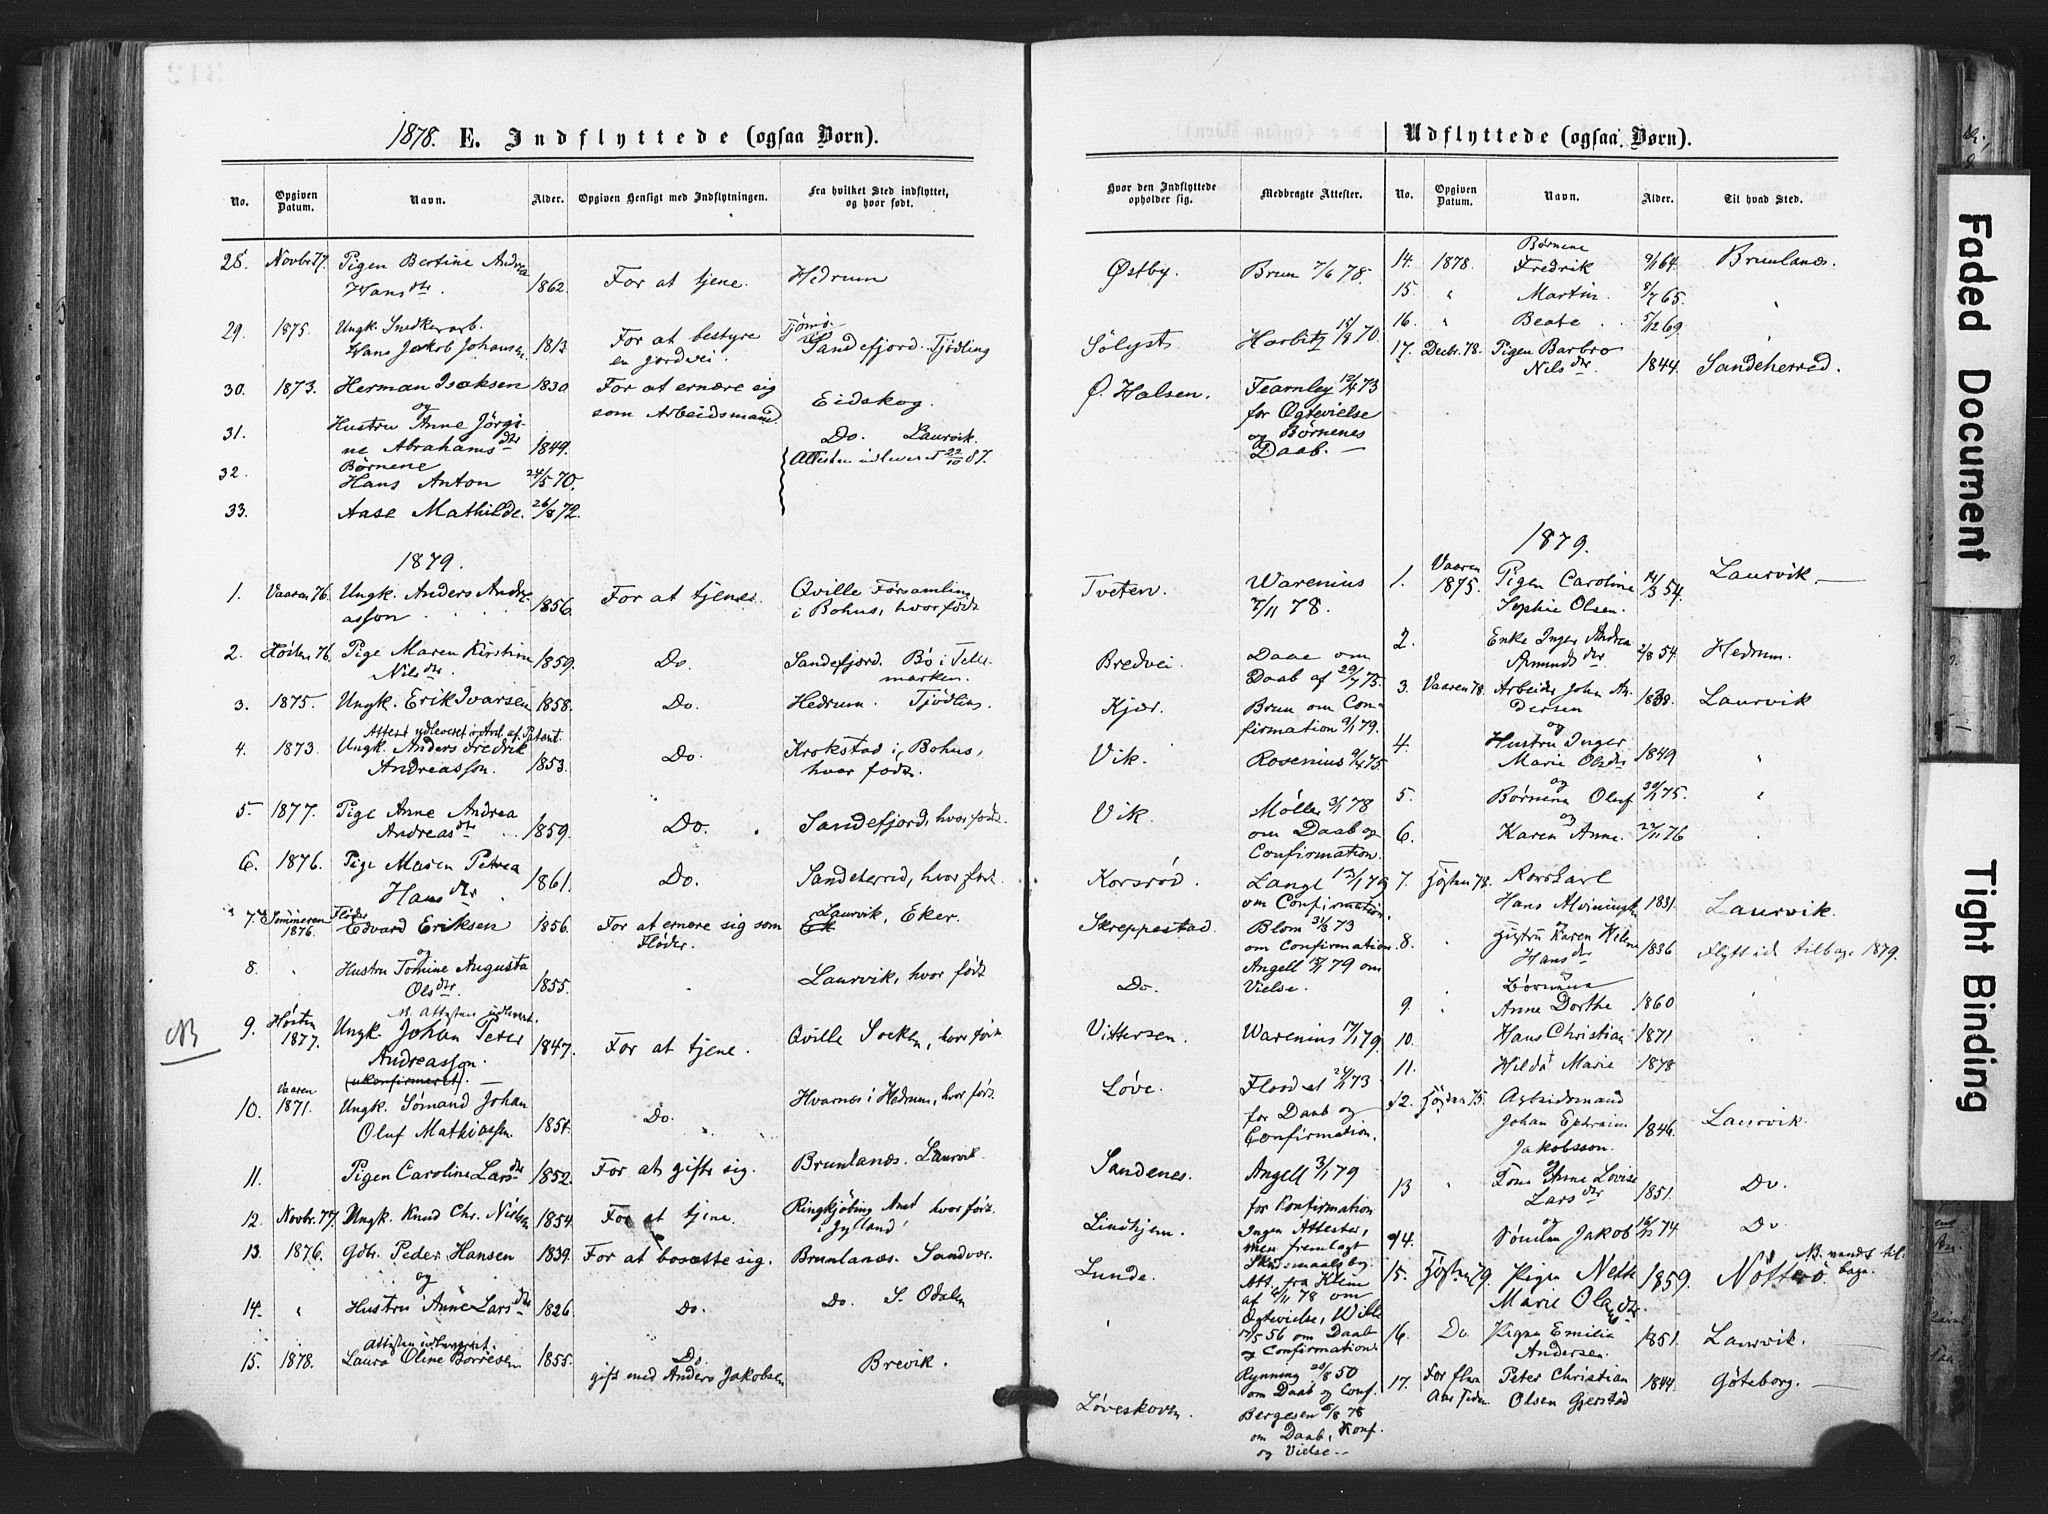 1878. E. Indflyttede (ogsaa Børn).
No. Opgiven Datum. Navn. Alder. Opgiven Hensigt med Indflytningen. Fra hvilket Sted indflyttet, og hvor født.
28. Novbr. 77. Pigen Bertine Andrea
Hansdtr. 1862. For at tjene. Hedrum
29. 1875. Ungk. Snedkerarb.
Hans Jakob Johansen 1813. For at bestyre en jordvei. Tjømø. Sandefjord. Tjødling
30. 1873. Herman Isaksen 1830 For at ernære sig som Arbeidsmand Eidskog.
og
31. Hustru Anne Jörgi-
ne Abrahamsdtr 1849. Do. Laurvik.
Attesten udleveret 22/10 87.
32. Børnene
Hans Anton 24/5 70.
33. Aase Mathilde. 26/8 72.
1879.
1. Vaaren 76. Ungk. Anders Andre-
asson 1856. For at tjene. Qville Forsamling i Bohus, hvor født
2. Høsten 76. Pige Maren Kirstine
Nilsdtr. 1859. Do. Sandefjord. Bö i Tele-
marken.
3. 1875. Ungk. Erik Ivarsen 1858. Do. Hedrum. Tjödling.
Attest udleveret i Anl. af Patent.
4. 1873. Ungk. Anders Fredrik
Andreasson. 1853. Do. Krokstad i Bohus, hvor født.
5. 1877. Pige Anne Andrea
Andreasdtr 1859. Do. Sandefjord, hvor født.
6. 1876. Pige Maren Petrea
Hansdtr 1861. Do. Sandeherred, hvor født.
7. Sommeren 1876. Fløder
Edvard Eriksen 1856. For at ernære sig som Fløder. Laurvik, Eker.
og
8. Hustru Tomine Augusta
Olsdtr. 1855. Laurvik, hvor født
NB. Attesten udlevert.
NB
9. Høsten 1877. Ungk. Johan Peter
Andreasson. 1847. For at tjene. Qville Socken, hvor født
(ukonfirmeret).
10. Vaaren 1871. Ungk. Sømand Johan
Oluf Mathiassen. 1851. Do. Hvarnes i Hedrum, hvor født.
11. Pigen Caroline Larsdtr 1852. For at gifte sig. Brunlanæs. Laurvik.
12. Novbr. 77. Ungk. Knud Chr. Nielsen 1854. For at tjene. Ringkjöbing Amt hvor født
i Jylland
13. 1876. Gdbr. Peder Hansen 1839. For at bosætte sig. Brunlanæs. Sandvær.
og
14. " Hustru Anne Larsdtr 1826. Do. Do. S. Odalen
Attesten udleveret.
15. 1878. Laura Oline Børresen 1855. Do. Brevik.
gift med Anders Jakobsen
Udflyttede (ogsaa Børn).
Hvor den Indflyttede opholder sig. Medbragte Attester. No. Opgiven Datum. Navn. Alder. Til hvad Sted.
Østby. Brun 7/6 78.
Sølyst. Harbitz 15/9 70.
Ø. Halsen. Fearnley 12/4 73
for Ægtevielse
og Børnenes
Daab. —
Tveten. Warenius
5/11 78.
Bredvei. Daae om
Daab af 29/7 75.
Kjær. Brun om Con-
firmation 2/1 79.
Vik. Rosenius 9/4 75
Vik. Møller 3/1 78
om Daab og
Confirmation.
Korsrød. Lange 13/1 79
om Confirmation.
Skreppestad. Blom 31/3 73
om Confirmation
Do. Angell 15/1 79 om
Vielse.
Vittersen. Warenius 17/1 79.
Løve. Flood at 24/1 73
for Daab og
Confirmation.
Sandenes. Angell 3/1 79
for Konfirmation
Lindhjem. Ingen Attester,
men fremlagt
Skudsmaalsbog.
Lunde. Att. fra Klem
af 4/11 78 om
Ægtevielse, Wille
17/5 56 om Daab
og Confirmation
Rynning 20/8 50
om Daab og Conf.
Løveskoven. Bergesen 5/8 78
om Daab, Konf.
og Vielse. —
14. 1878. Børnene
Fredrik 9/1 64. Brunlanæs.
15. " Martin. 8/7 65. "
16. " Beate 5/12 69 "
17. Decbr. 78. Pigen Barbro
Nilsdtr. 1844. Sandeherred.
1879.
1. Vaaren 1875. Pigen Caroline
Sophie Olsen. 14/3 54. Laurvik. —
2. Enke Inger Andrea
Amundsdtr 2/8 54. Hedrum.
3. Vaaren 78. Arbeider John An-
dersen 1838. Laurvik
og
4. Hustru Inger
Marie Olsdtr 1849 "
og
5. Børnene Oluf 30/1 75. "
og
6. Karen Anne. 27/11 76 "
7. Høsten 78. Rorskarl
Hans 1831. Laurvik.
og
8. " Hustru Karen Helene
Hansdtr 1836 Flytt. ids tilbage 1879.
og
Børnene
9. " Anne Dorthe 1860
10. Hans Christian 1871
11. Hilda Marie 1878
12. Høsten 75. Arbeidsmand
Johan Ephraim
Jakobsson. 1846. Laurvik.
og
13 " Kone Anne Lovise
Larsdtr 1851. Do.
og
14. Sønnen Jakob 16/12 74 Do
15. Høsten 79. Pigen Nelle
Marie Olausdtr. 1859. Nøtterö. NB. vendt til-
bage.
16. Do. Pigen Emilie
Andersen. 1851. Laurvik.
17. For flere Aar siden Peter Christian
Olsen Gjerstad 1844. Göteborg. —
Faded Document
Tight Binding